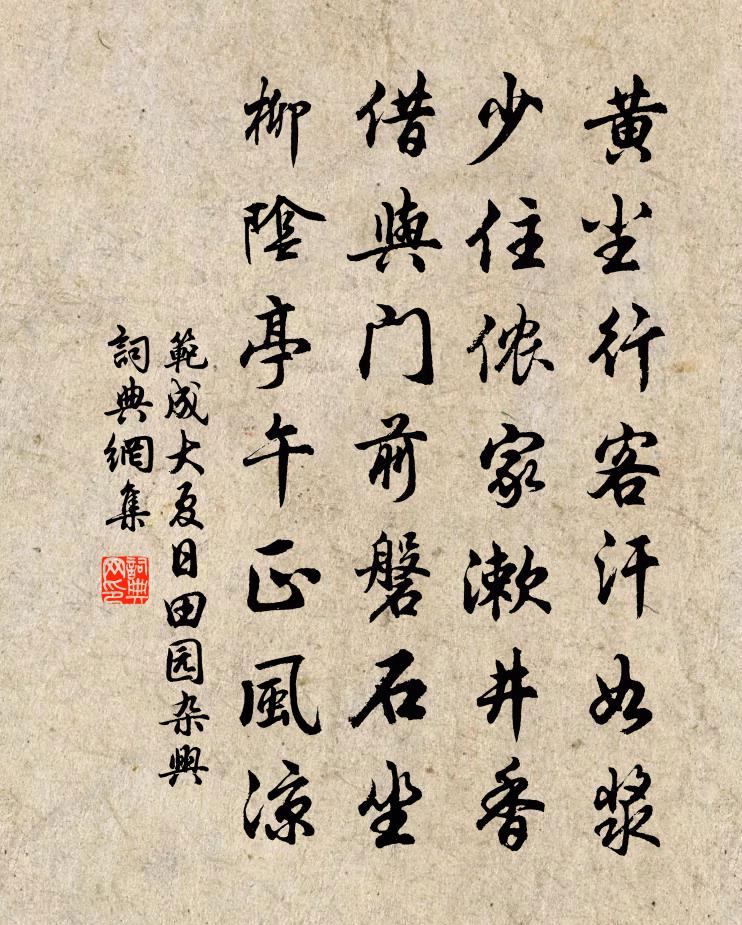 黄尘行客汗如浆
少住侬家漱井香
借與门前磐石坐
柳陰亭午正風涼
範成大夏日田园杂興
詞典網集
詞典
网印